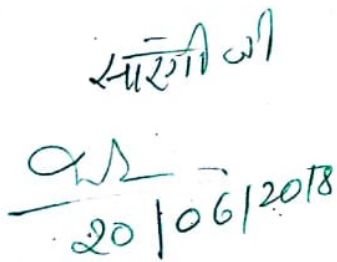 सारंगी जी
20/06/2018